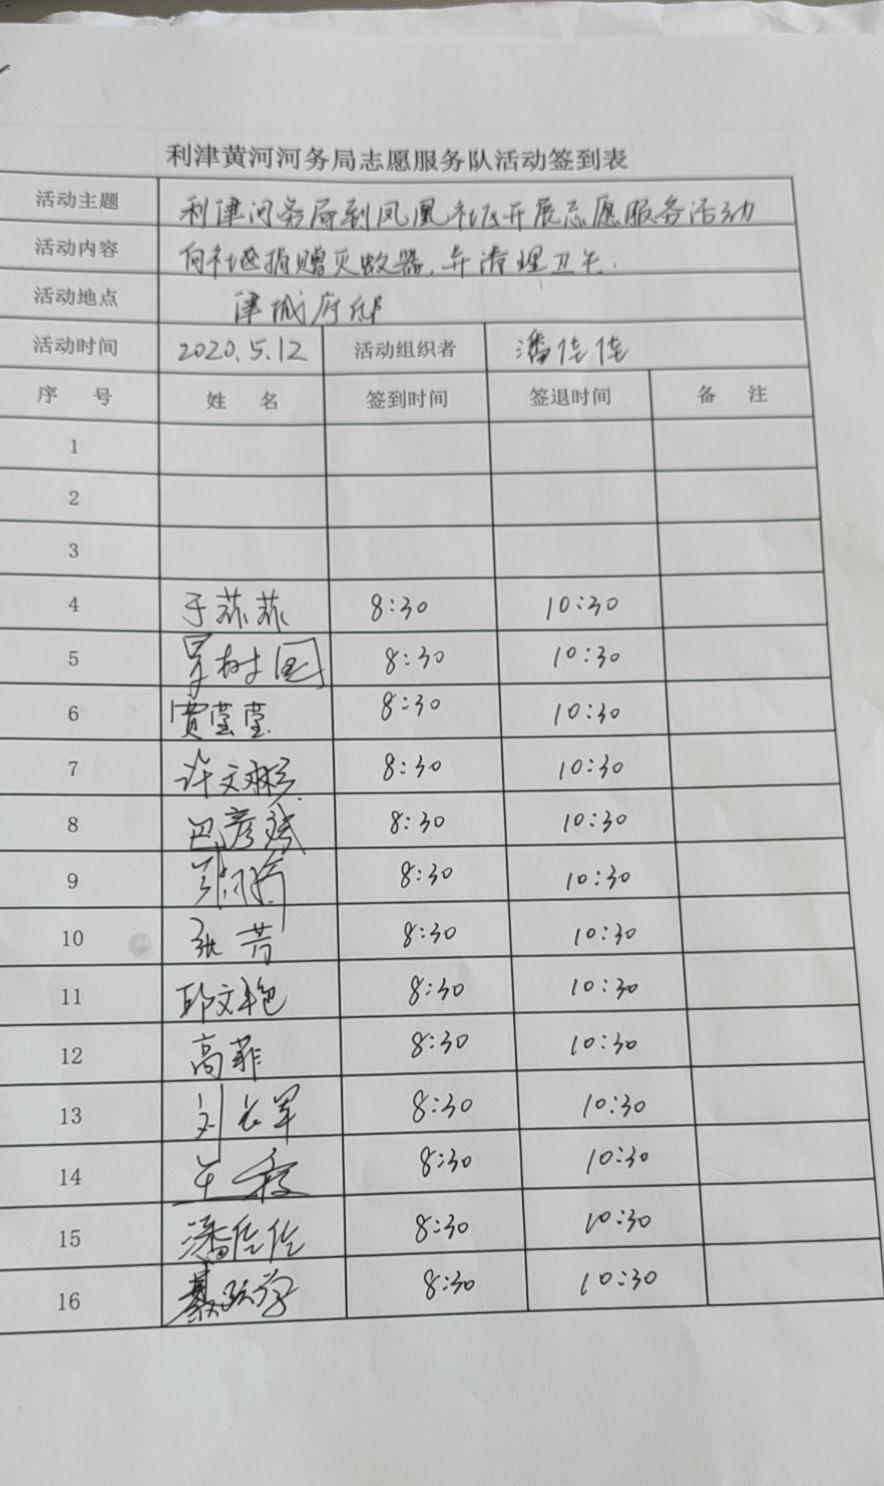 利津黄河河务局志愿服务队活动签到表
活动主题 利津河务局到凤凰社区开展志愿服务活动
活动内容 向社区捐赠灭火器,并清理卫生.
活动地点 津城府邸
活动时间 2020.5.12 活动组织者 潘佳佳
序 号 姓 名 签到时间 签退时间 备 注
1
2
3
4 于菲菲 8:30 10:30
5 树国 8:30 10:30
6 贾莹莹 8:30 10:30
7 许文 8:30 10:30
8 巴彦斌 8:30 10:30
9 8:30 10:30
10 张芳 8:30 10:30
11 邱文艳 8:30 10:30
12 高菲 8:30 10:30
13 刘长军 8:30 10:30
14 8:30 10:30
15 潘佳佳 8:30 10:30
16 綦 8:30 10:30